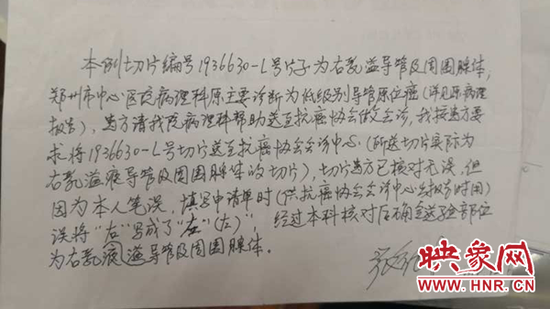 本例切片编号1936630-L号片子为右乳溢导管及周围腺体,
郑州市中心医院病理科原主要诊断为低级别导管原位癌(详见原病理
报告),患方请我院病理科帮助送至抗癌协会做会诊,我按患方要
求将1936630-L号切片送至抗癌协会会诊中心(所送切片实际为
右乳溢液导管及周围腺体的切片),切片患方已核对无误,但
因为本人笔误,填写申请单时(供抗癌协会会诊中心出报告时用)
误将“右”写成了“左”(左)。经过本科核对后确定送验部位
为右乳溢液导管及周围腺体。
映象网
WWW.HNR.CN